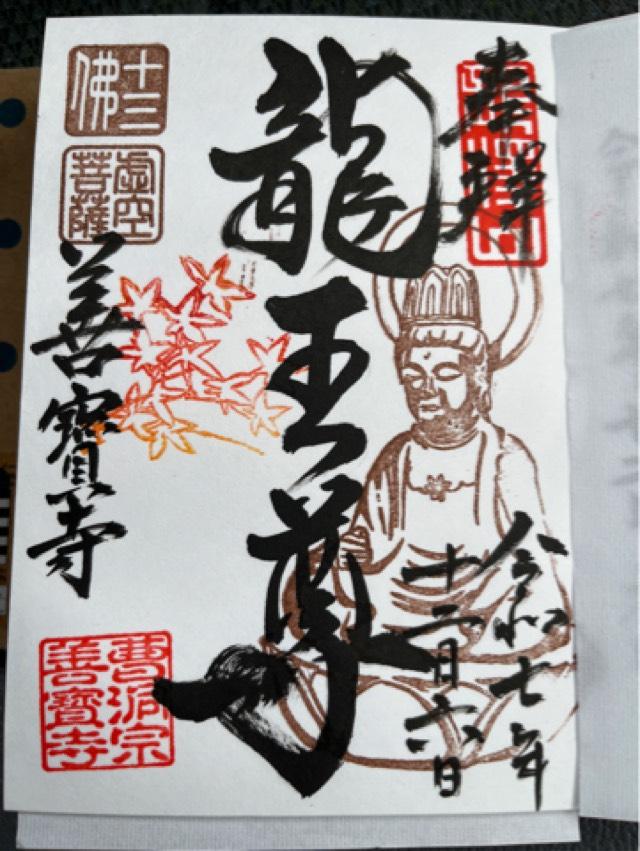 奉拝
龍王尊
令和七年
十二月六日
十三
佛
虚空
菩薩
善寳寺
曹洞宗
善寳寺